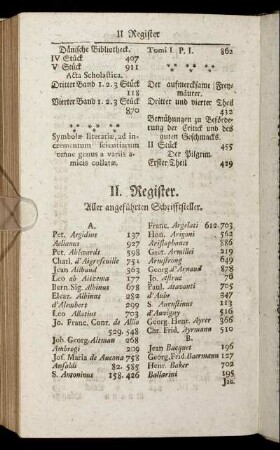 II Register
Dänische Bibliotheck.
IV Stück 407
V Stück 911
Acta Scholastica.
Dritter Band 1. 2. 3 Stück
118
Vierter Band 1. 2. 3 Stück
870
Symbolæ literariæ, ad in-
crementum scientiarum
omne genus a variis a-
micis collatæ.
Tomi I P. I. 862
Der aufmercksame Frey-
mäurer.
Dritter und vierter Theil
432
Bemühungen zu Beförde-
rung der Critick und des
guten Geschmacks.
II Stück 455
Der Pilgrim.
Erster Theil 429
II. Register.
Aller angeführten Schrifftsteller.
A
Pet. Aegidius 137
Aelianus 927
Pet. Ahlwardt 598
Charl. d'Aigrefeuille 751
Jean Aitbaud 363
Leo ab Aitzema 177
Bern. Sig. Albinus 678
Eleaz. Albinus 282
d'Alembert 209
Leo Allatius 703
Jo. Franc. Conr. de Allio
529. 548
Joh. Georg. Altman 268
Ambrogi 209
Jos. Maria de Ancona 758
Ansaldi 82. 585
S. Antoninus 158. 426
Franc. Argelati 612. 703
Hon. Arigoni 562
Aristophanes 886
Gast. Armillei 219
Armstrong 649
Georg d'Arnaud 878
Jo. Astruc 76
Paul. Atavanti 705
d'Aube 347
S. Aurestinus 183
d'Auvigny 516
Georg. Henr. Ayrer 366
Chr. Frid. Ayrmann 510
B.
Jean Bacquet 196
Georg. Frid. Baermann 127
Henr. Baker 702
Ballarini 195
Jac.